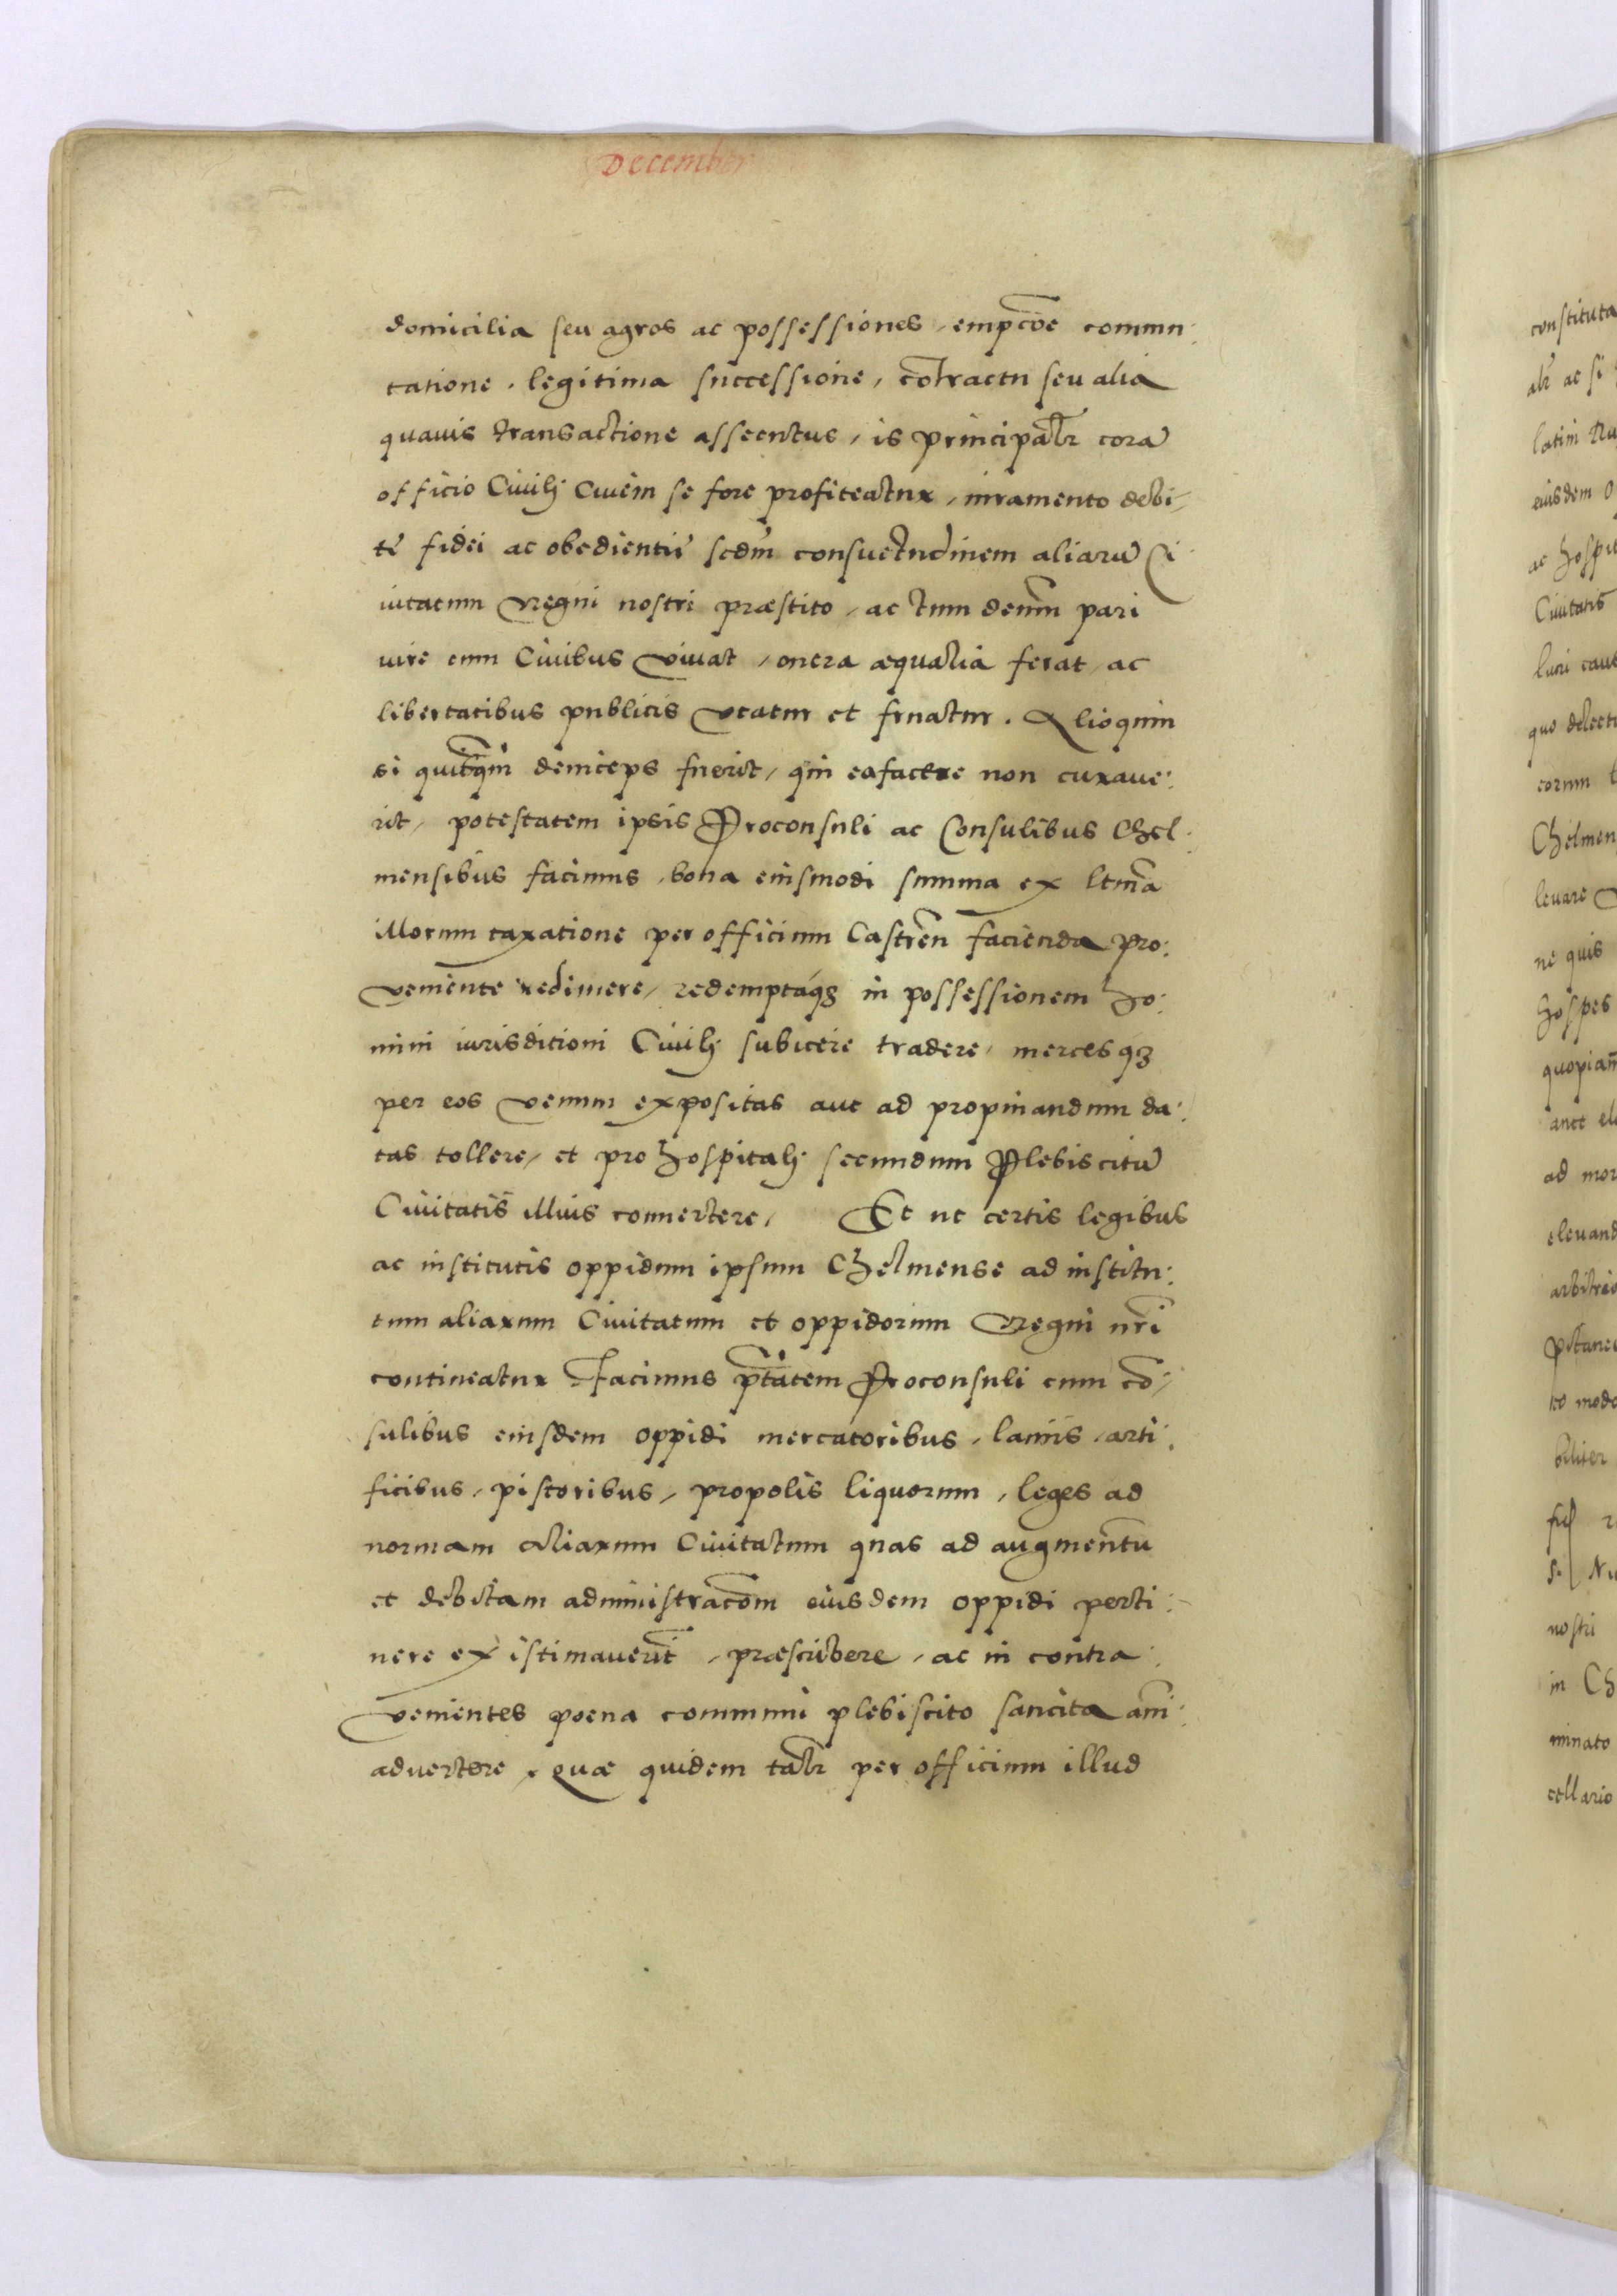 December
domicilia seu agros ac possessiones, empc̄oe commu:
tatione. legitima successione, cōtractu seu alia
quauis transactione assecutus, is principalr̄ corā
officio Ciuilj Ciuem se fore profiteatur, iuramento debi-
tę fidei ac obedientię scdm̄ consuetudinem aliarū Ci
uitatum Regni nostri præstito, ac tum demū pari
iure cum Ciuibus viuat, onera æqualia ferat, ac
libertatibus publicis vtatur et fruatur. Alioquin
si deinceps fuerit, qui ea facere non curaue:
rit, potestatem ipsis Proconsuli ac Consulibus Chel:
mensibus facimus, bona eiusmodi summa ex
illorum taxatione per officium Castren̄ facienda pro:
veniente redimere, redemptaq3 in possessionem ho:
mini iurisditioni Ciuilj subicere tradere, mercesq3
per eos venum expositas aut ad propinandum da:
tas tollere, et pro hospitalj secundum Plebiscitū
Ciuitatis illius conuertere, Et ut certis legibus
ac institutis oppidum ipsum Chelmense ad institu:
tum aliarum Ciuitatum et oppidorum Regni nr̄i
contineatur Facimus ptātem Proconsuli cum cō,
sulibus eiusdem oppidi mercatoribus, laniis, arti:
ficibus, pistoribus, propolis liquorum, leges ad
normam aliarum Ciuitatum quas ad augmentū
et debitam administrac̄om eiusdem oppidi perti:
nere existimauerīt, præscribere, ac in contra:
venientes poena communi plebiscito sancita anī:
aduertere, quæ quidem talr̄ per officium illud
constituta
alr̄ ac si
latim
eiusdem
ac hospit
Ciuitatis
quo delect
eorum
Chelmen
leuare
ne quis
hospes
quopiam̄
ad mor
eleuand
arbitrio
modo
nostri
in Ch
minato
cellario